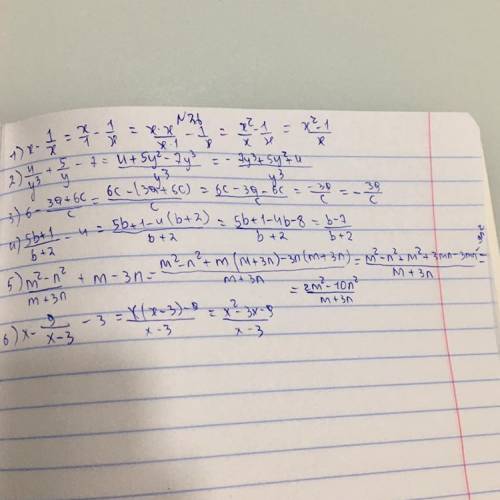 N26
1) x - 1/x = x/1 - 1/x = x·x/x·1 - 1/x = x²/x - 1/x = x²-1/x
2) 4/y³ + 5/y - 7 = 4+5y²-7y³/y³ = -7y³+5y²+4/y³
3) 6 - 3a+6c/c = 6c-(3a+6c)/c = 6c-3a-6c/c = -3a/c = -3a/c
4) 5b+1/b+2 - 4 = 5b+1-4(b+2)/b+2 = 5b+1-4b-8/b+2 = b-7/b+2
5) m²-n²/m+3n + m - 3n = m²-n²+m(m+3n)-3n(m+3n)/m+3n = m²-n²+m²+3mn-3mn-9n²/m+3n =
= 2m²-10n²/m+3n
6) x - 9/x-3 - 3 = x(x-3)-9/x-3 = x²-3x-9/x-3